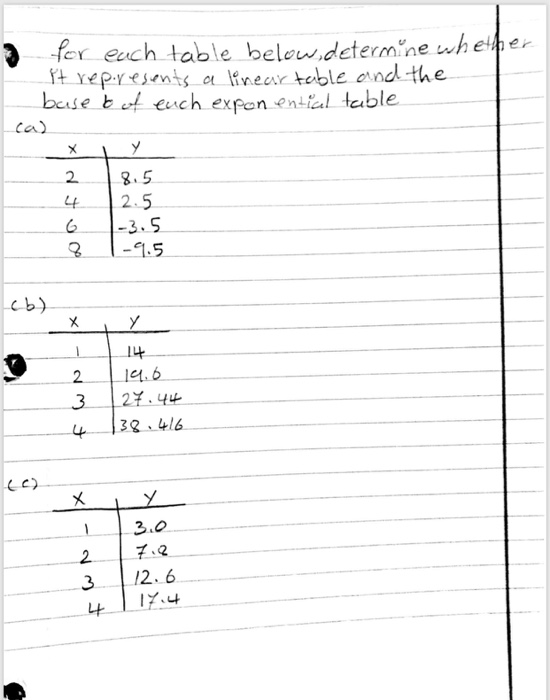 for each table below, determine whether
it represents a linear table and the
base b of each exponential table
(a)
x y
2 8.5
4 2.5
6 -3.5
8 -9.5
(b)
x y
1 14
2 19.6
3 27.44
4 38.416
(c)
x y
1 3.0
2 7.8
3 12.6
4 17.4